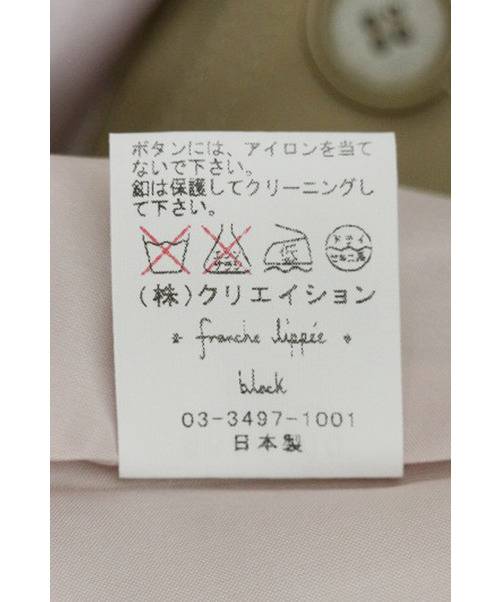 ボタンには、アイロンを当て
ないで下さい。
釦は保護してクリーニングし
て下さい。
エンソ
サラシ
低
ドライ
セキユ系
(株)クリエイション
franche lippée
black
03-3497-1001
日本製